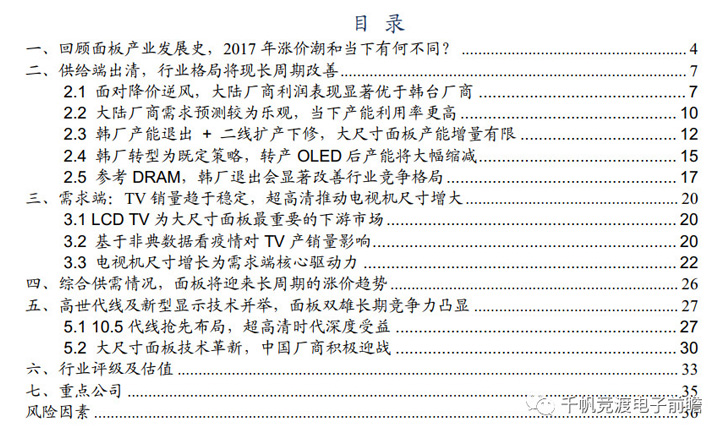 目 录
一、回顾面板产业发展史，2017 年涨价潮和当下有何不同？ 4
二、供给端出清，行业格局将现长周期改善 7
2.1 面对降价逆风，大陆厂商利润表现显著优于韩台厂商 7
2.2 大陆厂商需求预测较为乐观，当下产能利用率更高 10
2.3 韩厂产能退出 + 二线扩产下修，大尺寸面板产能增量有限 12
2.4 韩厂转型为既定策略，转产 OLED 后产能将大幅缩减 15
2.5 参考 DRAM，韩厂退出会显著改善行业竞争格局 17
三、需求端：TV 销量趋于稳定，超高清推动电视机尺寸增大 20
3.1 LCD TV 为大尺寸面板最重要的下游市场 20
3.2 基于非典数据看疫情对 TV 产销量影响 20
3.3 电视机尺寸增长为需求端核心驱动力 22
四、综合供需情况，面板将迎来长周期的涨价趋势 26
五、高世代线及新型显示技术并举，面板双雄长期竞争力凸显 27
5.1 10.5 代线抢先布局，超高清时代深度受益 27
5.2 大尺寸面板技术革新，中国厂商积极迎战 30
六、行业评级及估值 33
七、重点公司 35
风险因素 36
千帆竞渡电子前瞻